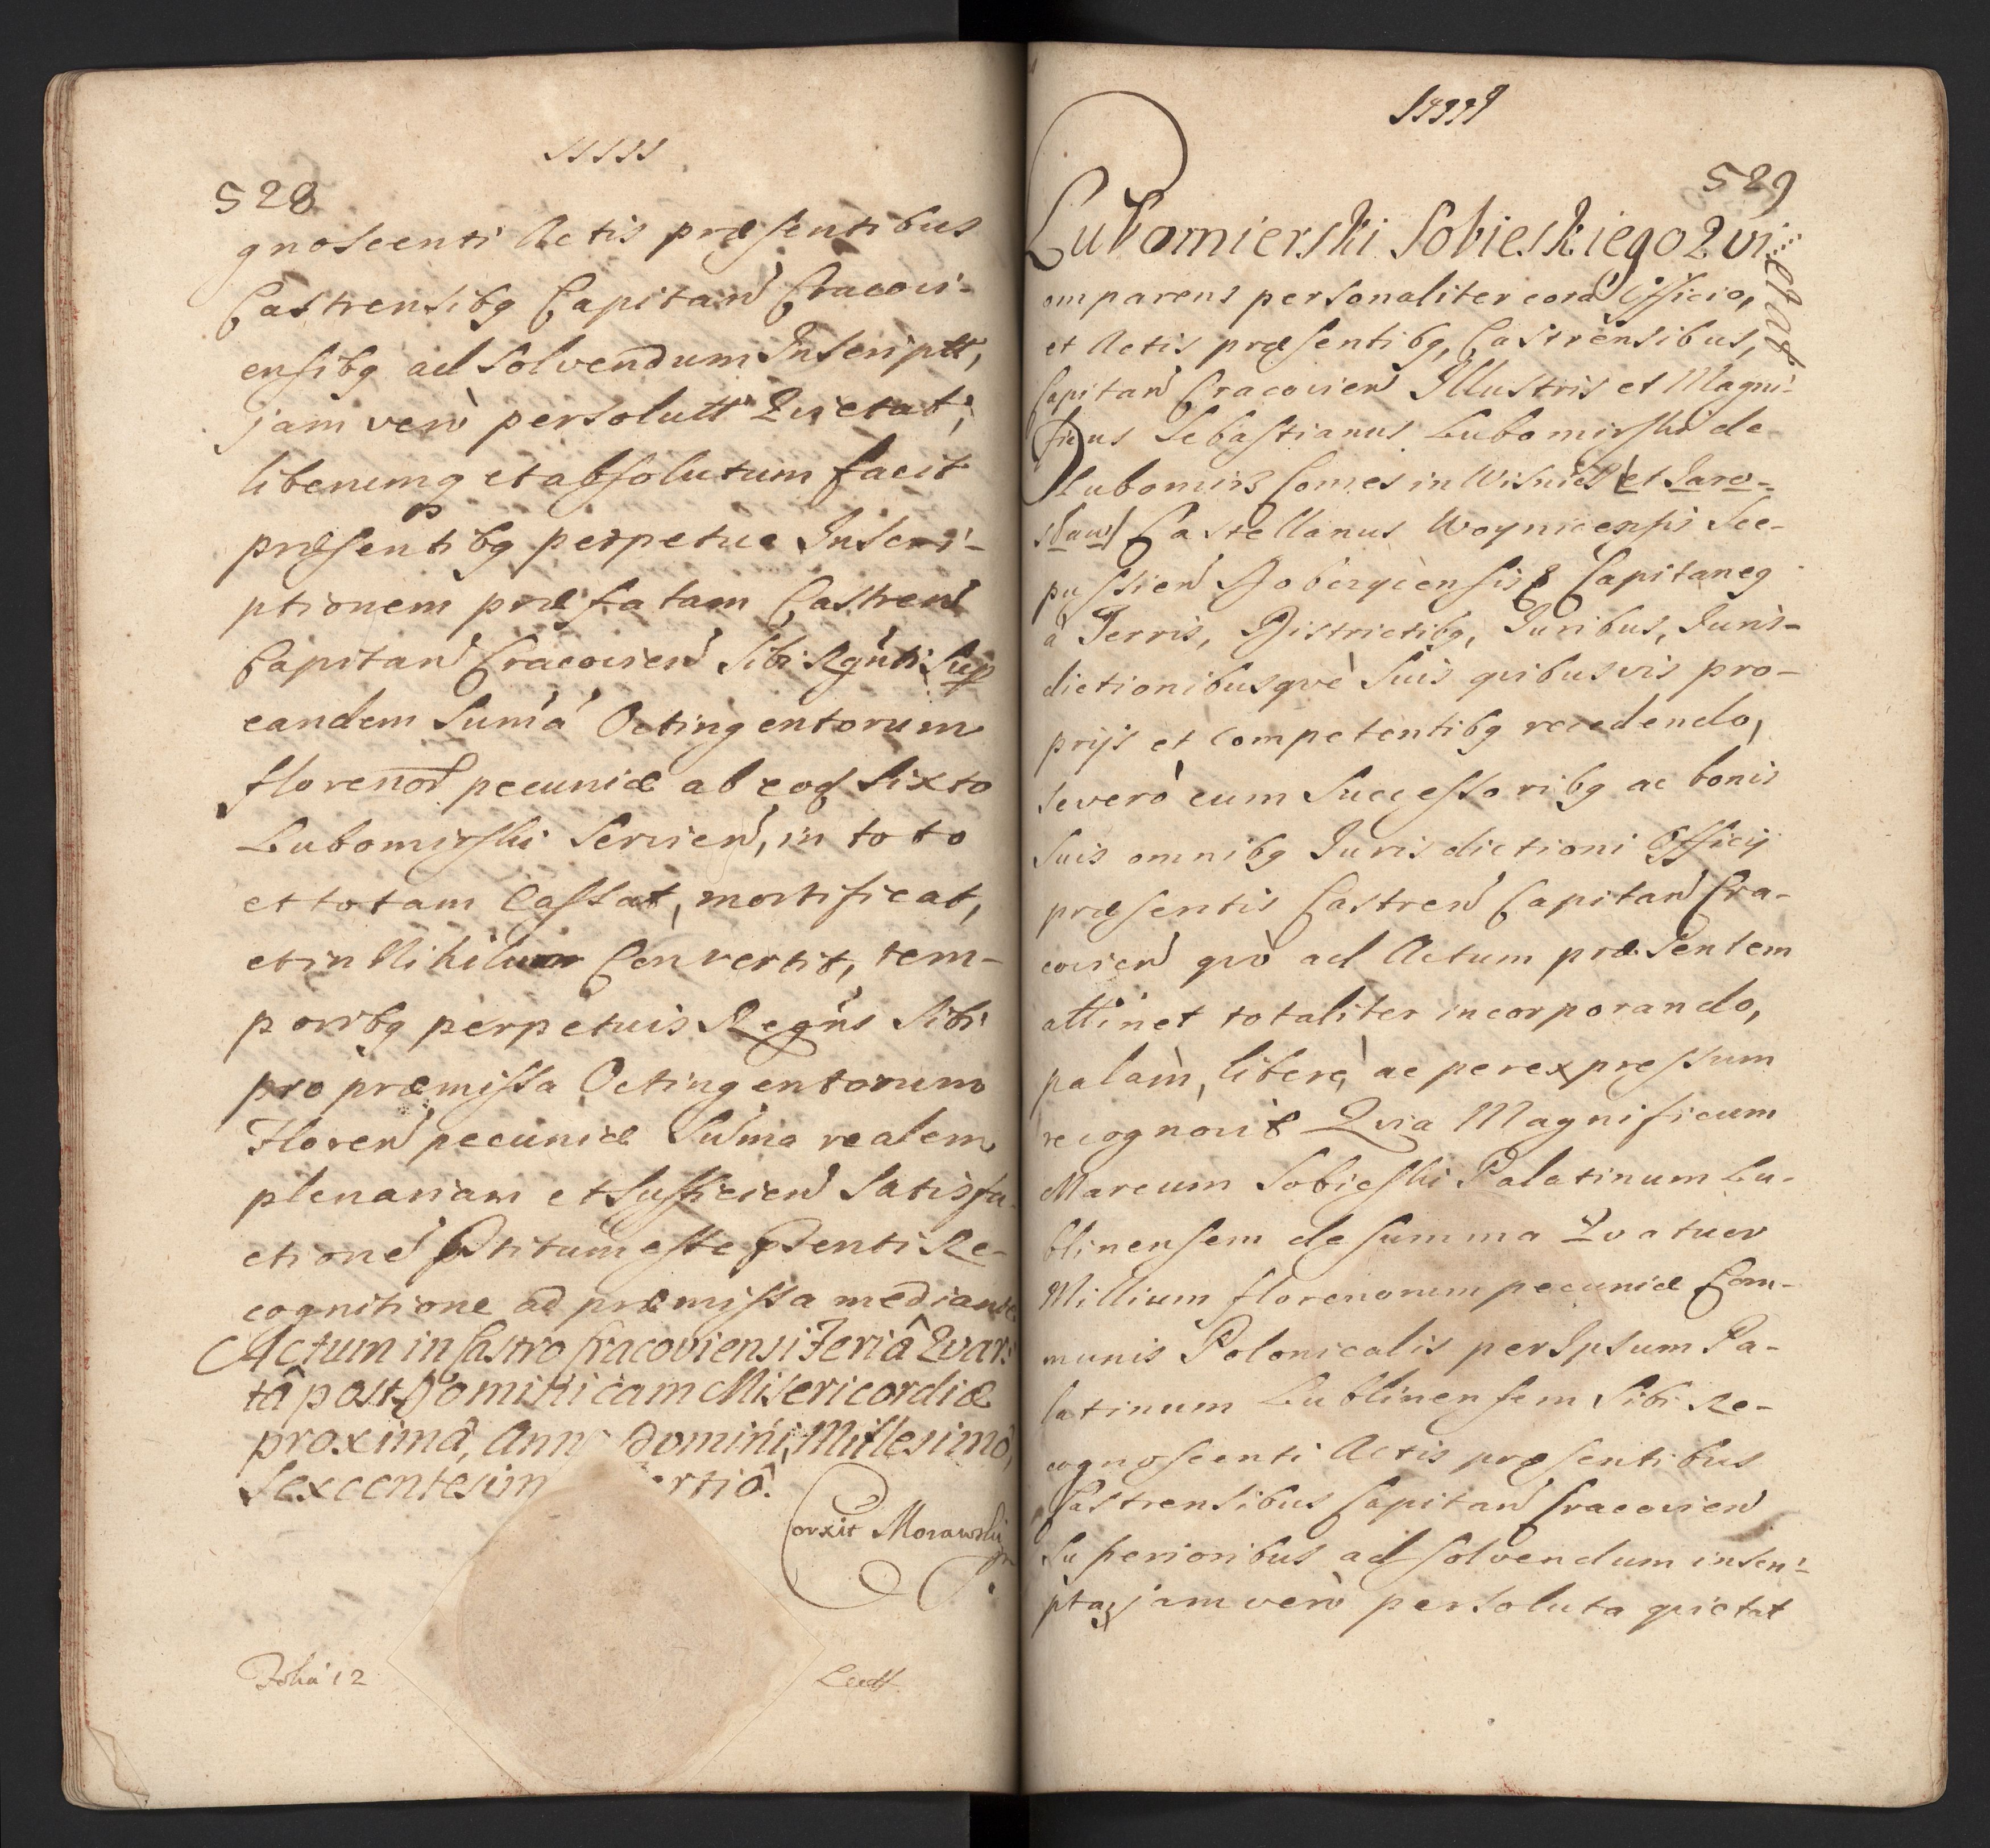 528
gnoscenti Actis præsentibus
Castrensibq Capitan Cracovi-
ensibq ad solvendum Inscriptt,
jam verò persolutt Quietat,
liberumq et absolutum facit
præsentibq perpetuo Inscri-
ptionem præfatam Castren
Capitan Cracovien Sibi Rgnti sup
eandem Sumã Octingentorum
florenor pecuniæ ab eod Sixto
Lubomirski Servien, in toto
et totam Cassat, mortificat,
et in Nihilum Convertit, tem-
poribq perpetuis Regns Sibi
pro præmissa Octingentorum
Floren pecuniæ Suma realem
plenariam et Sufficien Satisfa-
ctione esse Re-
cognitione ad præmissa mediante
Actum in Castro Cracoviensi Feriâ Quar:
tâ post Dominicam Misericordiæ
proximâ, Anno Domini, Millesimô,
Sexcentesim ertiô.
Corxit Morawski
Folia 12
529
Lubomierski Sobieskiego Qui:
etat
omparens personaliter corã Officio,
et Actis præsentibq, Castrensibus,
Capitan Cracovien Illustris et Magni-
ficus Sebastianus Lubomirski de
Lubomirz Comes in Wisnicz et Jaro-
slaw Castellanus Woynicensis Sce-
pusien Dobczycensis & Capitaneq
à Terris, Districtibq, Juribus, Juris-
dictionibusqvè Suis quibusvis pro-
prijs et Competentibq recedendo,
se verò cum Successoribq ac bonis
Suis omnibq Jurisdictioni Officij
præsentis Castren Capitan Cra-
covien qvò ad Actum præsentem
attinet totaliter incorporando,
palàm, liberè, ac per expressum
recognovit Quia Magnificum
Marcum Sobieski Palatinum Lu-
blinensem de summa Quatuor
Millium florenorum pecuniæ Com-
munis Polonicalis per Ipsum Pa-
latinum Lublinensem Sibi Re-
cognoscenti Actis præsentibus
Castrensibus Capitan Cracovien
Superioribus ad solvendum inscri-
pta, jam verò persoluta qvietat